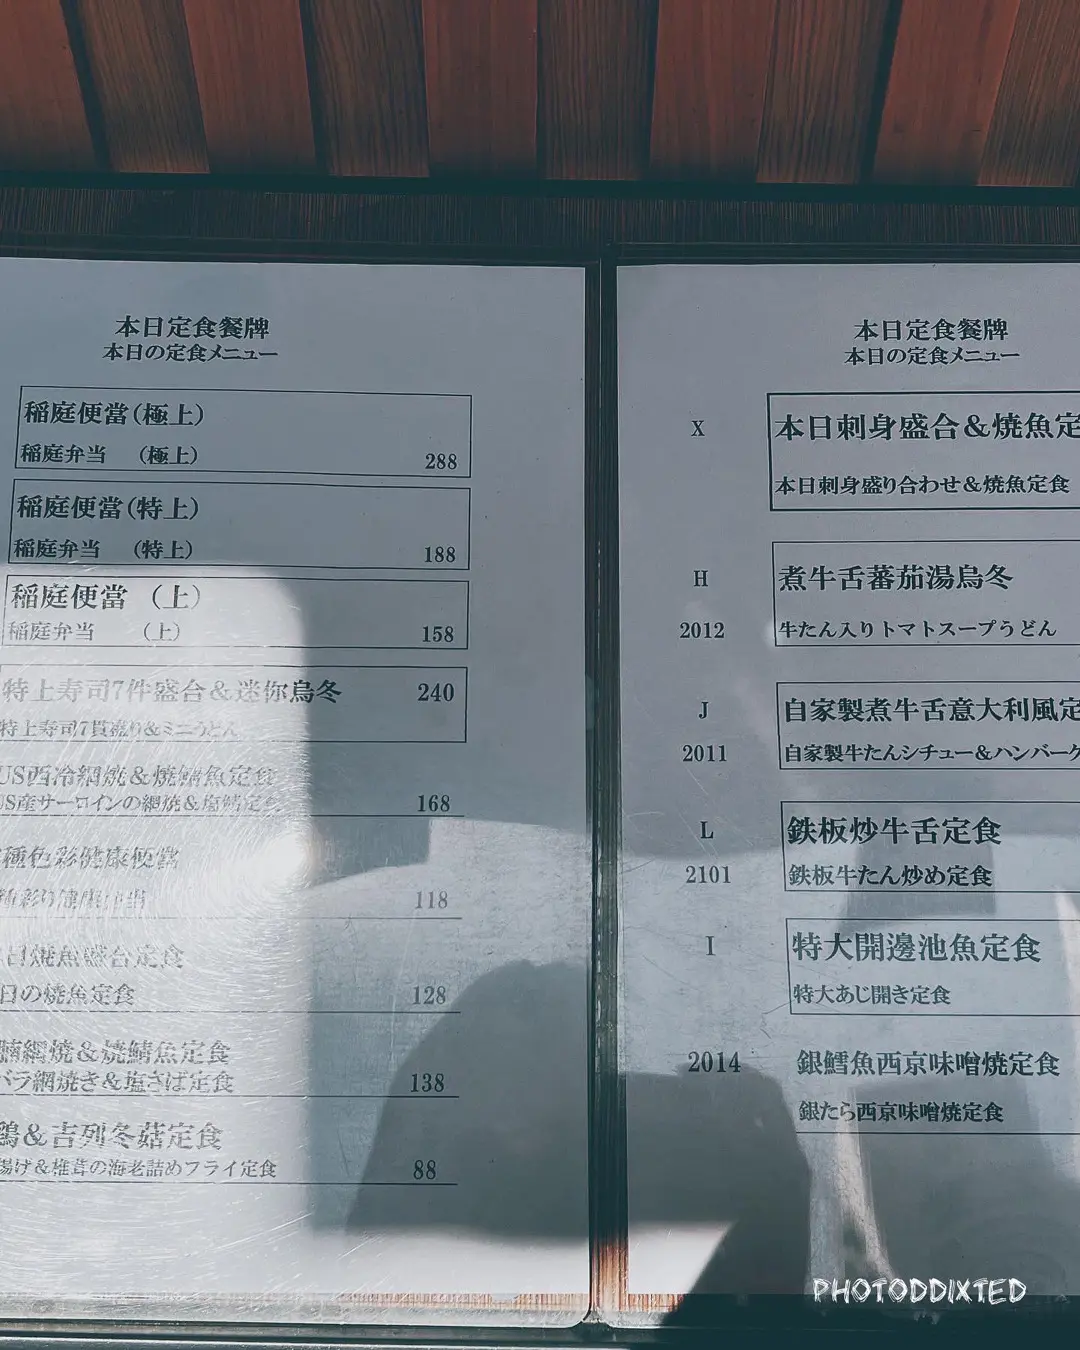 本日定食餐牌
本日の定食メニュー
稲庭便當(極上)
稲庭弁当 (極上) 288
稲庭便當(特上)
稲庭弁当 (特上) 188
稲庭便當 (上)
稲庭弁当 (上) 158
特上寿司7件盛合&迷你烏冬 240
特上寿司7貫盛り&ミニうどん
US西冷網焼&焼鯖魚定食
US産サーロインの網焼&塩鯖定食 168
種色彩健康便當
彩り健康弁当 118
日焼魚盛合定食
日の焼魚定食 128
腩網焼&焼鯖魚定食
バラ網焼き&塩さば定食 138
鶏&吉列冬菇定食
揚げ&椎茸の海老詰めフライ定食 88
本日定食餐牌
本日の定食メニュー
X 本日刺身盛合&焼魚定
本日刺身盛り合わせ&焼魚定食
H 煮牛舌蕃茄湯烏冬
2012 牛たん入りトマトスープうどん
J 自家製煮牛舌意大利風定
2011 自家製牛たんシチュー&ハンバーグ
L 鉄板炒牛舌定食
2101 鉄板牛たん炒め定食
I 特大開邊池魚定食
特大あじ開き定食
2014 銀鱈魚西京味噌焼定食
銀たら西京味噌焼定食
PHOTODDIXTED